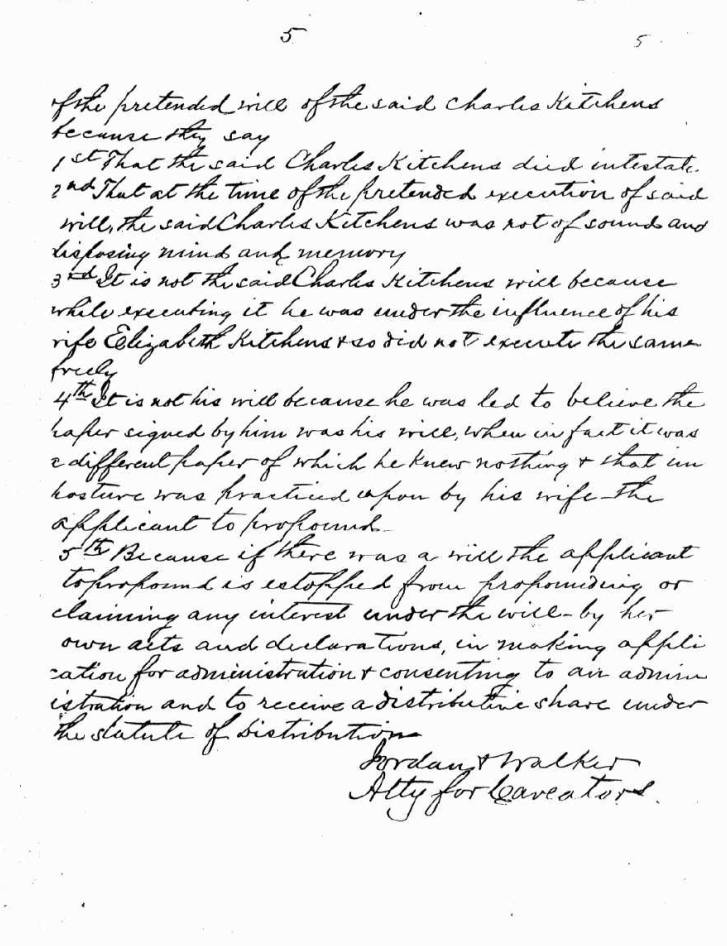 5 5
of the pretended will of the said Charles Kitchens
because they say
1st That the said Charles Kitchens died intestate.
2nd That at the time of the pretended execution of said
will, the said Charles Kitchens was not of sound and
disposing mind and memory
3rd It is not the said Charles Kitchens will because
while executing it he was under the influence of his
wife Elizabeth Kitchens & so did not execute the same
freely
4th It is not his will because he was led to believe the
paper signed by him was his will, when in fact it was
a different paper of which he knew nothing & that im
posture was practiced upon by his wife the
applicant to propound—
5th Because if there was a will the applicant
to propound is estopped from propounding or
claiming any interest under the will - by her
own acts and declarations, in making appli
cation for administration & consenting to an admin
istration and to receive a distributive share under
the statute of Distributions
Jordan & Walker
Atty for Caveators.